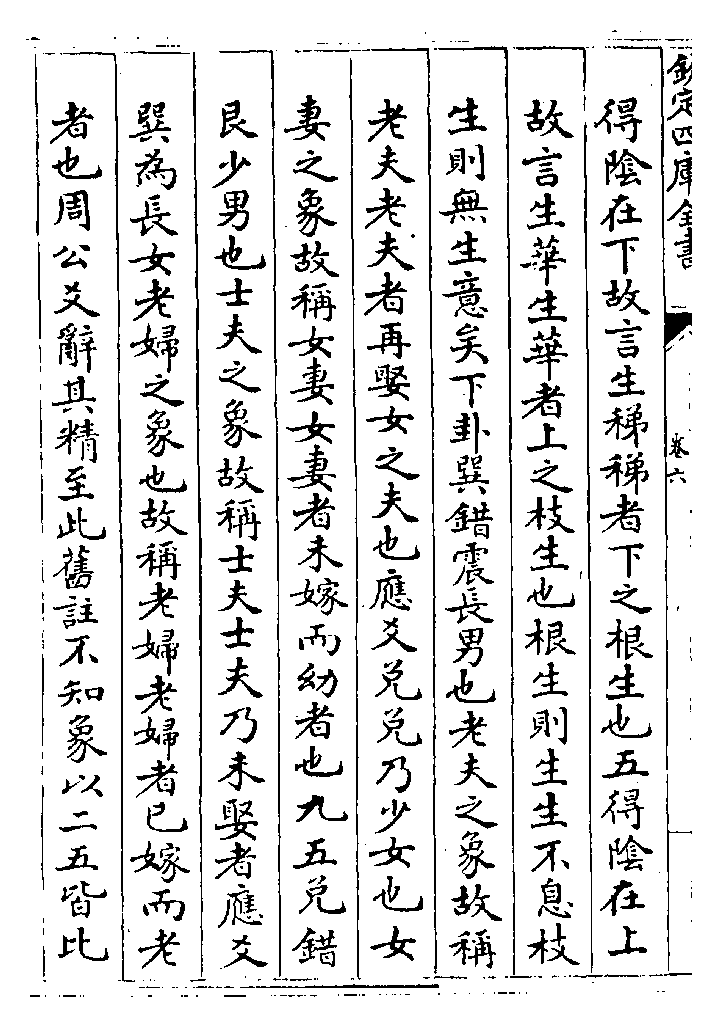 欽定四庫全書
卷六
得陰在下故言生稊稊者下之根生也五得陰在上
故言生華生華者上之枝生也根生則生生不息枝
生則無生意矣下卦巽錯震長男也老夫之象故稱
老夫老夫者再娶女之夫也應爻兌兌乃少女也女
妻之象故稱女妻女妻者未嫁而幼者也九五兌錯
艮少男也士夫之象故稱士夫士夫乃未娶者應爻
巽為長女老婦之象也故稱老婦老婦者已嫁而老
者也周公爻辭其精至此舊註不知象以二五皆比